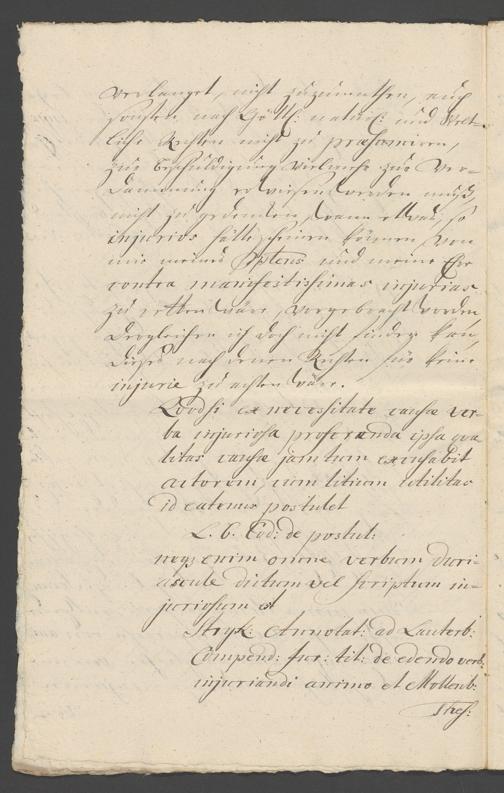 verlanget, nicht zuzumuthen, auch
sonsten nach Göttl: natürl: und Welt-
liche Rechten nicht zu præsumiren,
zur Beschuldigung vielmehr zur Ver-
dammung erwiesen werden muß,
nicht zu gedencken, wann etwas, so
injurios hätte scheinen können, von
mir meines Ptens und meine Ehre
contra manifestissimas injurias
zu retten wäre, vorgebracht worden
dergleichen ich doch nicht finden kan,
dieses nach denen Rechten für keine
injurie zu achten wäre.
Quodsi ex necessitate causæ ver-
ba injuriosa proferenda ipsa qua
litas causæ jam tum excusabit
actorem, cum litium utilitas
id eatenus postulet
L. 6. Cod: de postul:
neq3 enim omne verbum duri-
uscule dictum vel scriptum in-
juriosum est
Stryk: Annotat: ad Lauterb:
Compend: Jur: tit: de edendo verb:
injuriandi animo et Mollenb:
Thes: